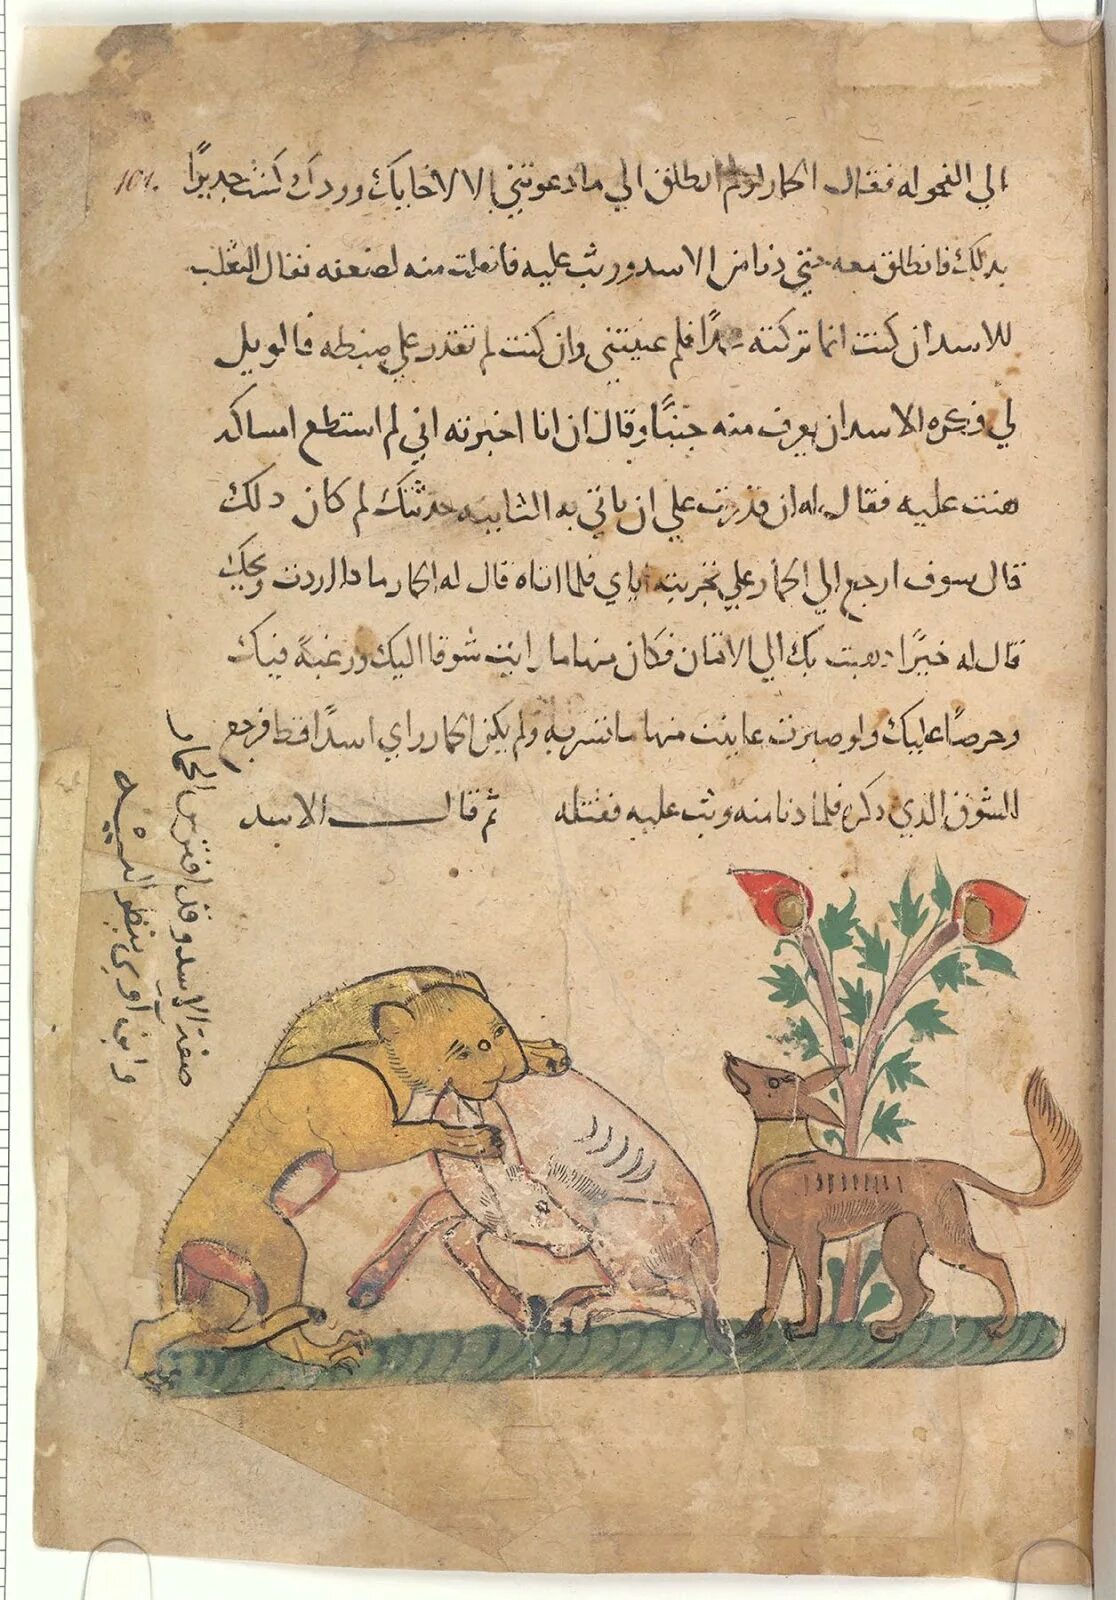 الي الفحوله فقال الحمار لو لم انطلق الي ما دعوتني الا لاخايك وودك كنت جديرًا
بدلك فانطلق معه حتي دنا من الاسد ووثب عليه فانفلت منه لضعفه فقال الثعلب
للاسد ان كنت انما تركته عمدًا فلم عنيتني وان كنت لم تقدر علي ضبطه فالويل
لي فكره الاسد ان يعرف منه جبنًا وقال ان انا اخبرته اني لم استطع امساكه
هنت عليه فقال له ان قدرت علي ان ياتي به الثانيه حدثتك لم كان دلك
قال سوف ارجع الي الحمار علي تجربته اياي فلما اتاه قال له الحمار مادا اردت ويحك
قال له خيرًا دهبت بك الي الاتان فكان منها ما رايت شوقا اليك ورغبة فيك
وحرصًا عليك ولو صبرت عاينت منها ما تسر به ولم يكن الحمار راي اسدًا قط فرجع
للشوق الدي دكره فلما دنا منه وثب عليه فقتله ثم قال الاسد
101.
صفة الاسد وقد افترس الحمار
وابن اوي ينظر اليه